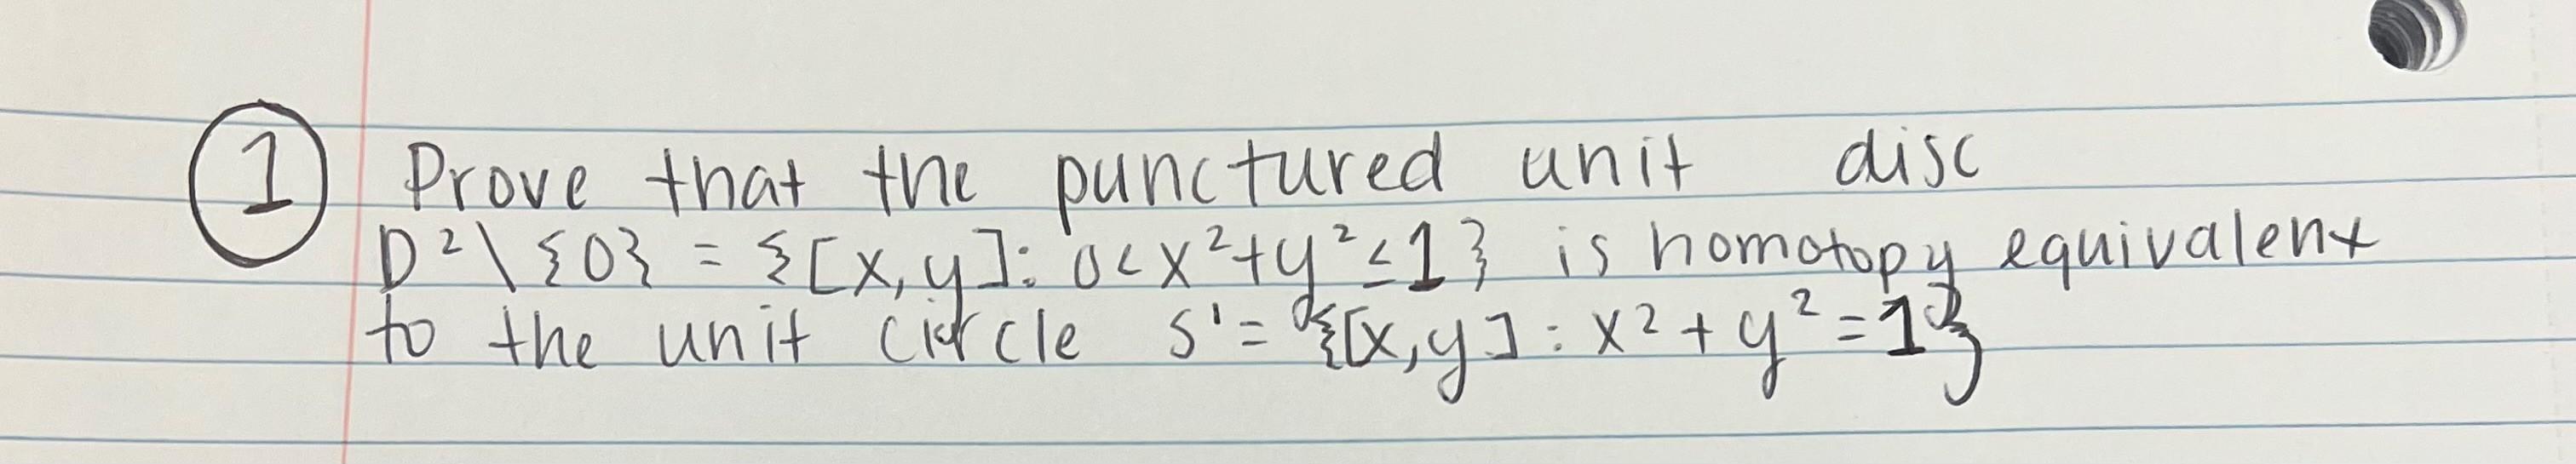 1 Prove that the punctured unit disc
D²\{0} = {[x,y]: 0<x²+y²≤1} is homotopy equivalent
to the unit circle S¹= {[x,y]: x²+y²=1}